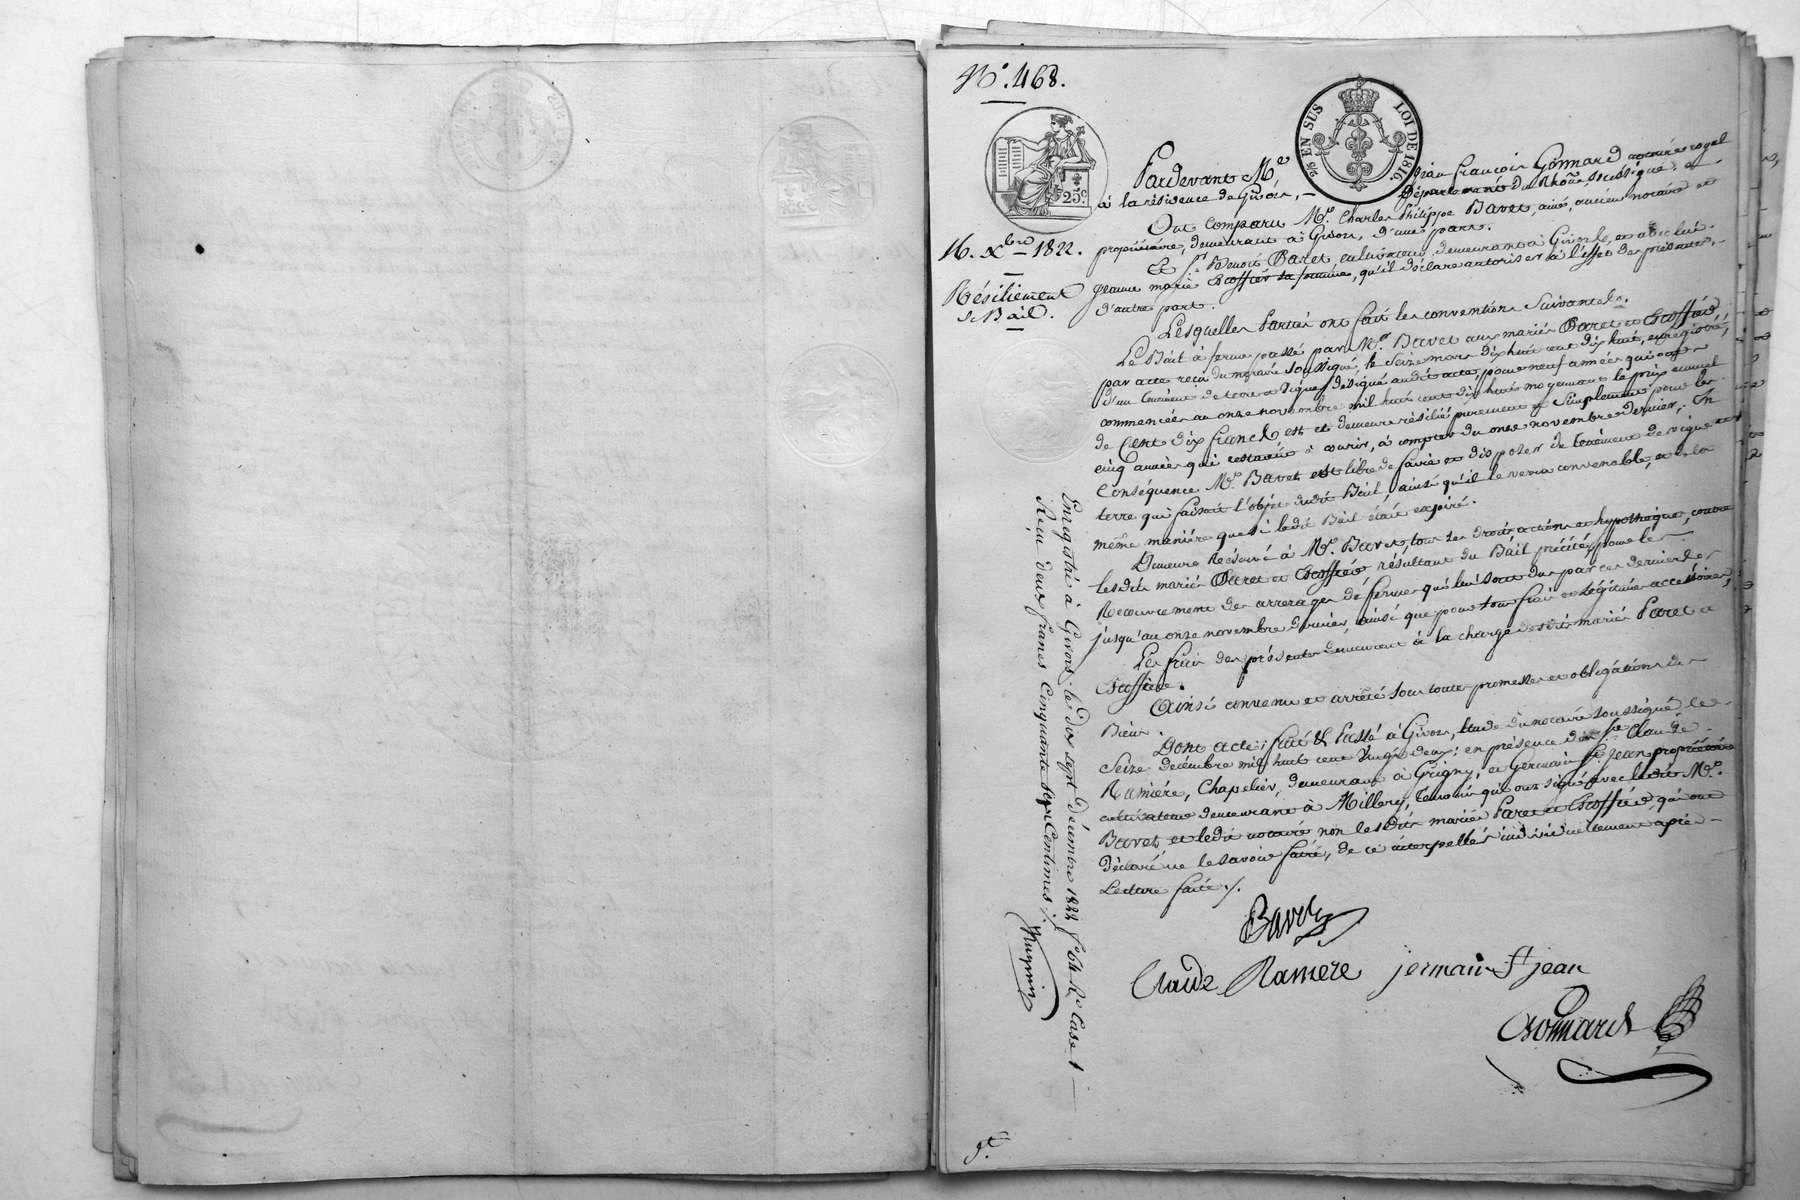 N.° 468.
2/5 EN SUS
LOI DE 1816.
25.c
16. Xbre 1822.
Résiliement
de Bail.
Pardevant Me. Jean François Gonnard notaire royal
à la résidence de Givors, Département du Rhône, soussigné,
Ont comparu Mr. Charles Philippe Bavet, ainé, ancien notaire et
propriétaire, demeurant à Givors, d'une part.
Et sr. Benoit Paret cultivateur demeurant à Givors, et avec lui
Jeanne marie Escoffier sa femme, qu'il déclare autoriser à l'effet des présentes,
d'autre part.
Lesquelles Parties ont fait les conventions suivantes.
Le Bail à ferme passé par Mr. Bavet aux mariés Paret et Escoffier,
par acte reçu du notaire soussigné, le seize mars dix huit cent dix huit, enregistré,
d'un tenement de terre et vignes désigné audit acte, pour neuf années qui ont
commencées au onze novembre mil huit cent dix huit moyennant le prix annuel
de Cent dix francs est et demeure résilié purement et simplement pour les
cinq années qui restaient à courir, à compter du onze novembre dernier. En
Conséquence Mr. Bavet est libre de faire et disposer du tenement de vigne et
terre qui faisait l'objet dudit Bail, ainsi qu'il le verra convenable, et de la
même manière que si ledit Bail était expiré.
Demeure Réservé à Mr. Bavet, tous ses droits actions et hypothèques, contre
lesdits mariés Paret et Escoffier résultant du Bail précité, pour le
Recouvrement des arrerages de fermes qui lui sont dus par ces derniers
jusqu'au onze novembre dernier, ainsi que pour tous frais et légitimes accessoires,
Les frais des présentes demeurent à la charge desdits mariés Paret et
Escoffier.
Ainsi convenu et arrêté sous toutes promesses et obligations de
Biens.
Dont acte; fait & Passé à Givors, étude du notaire soussigné, le
Seize décembre mil huit cent vingt deux; en présence de sr. Claude
Ramière, Chapelier, demeurant à Grigny, et Germain St. Jean propriétaire
cultivateur demeurant à Millery, temoins qui ont signé avec ledit Mr.
Bavet, et ledit notaire non lesdits mariés Paret et Escoffier, qui ont
déclaré ne le savoir faire, de ce interpellés individuellement après
Lecture faite./.
Bavet
Claude Ramière
jermain St jean
Gonnard
Enregistré à Givors. le dix sept décembre 1822 fo. 64 Ro. Case 1
Reçu deux francs Cinquante sept Centimes ./.